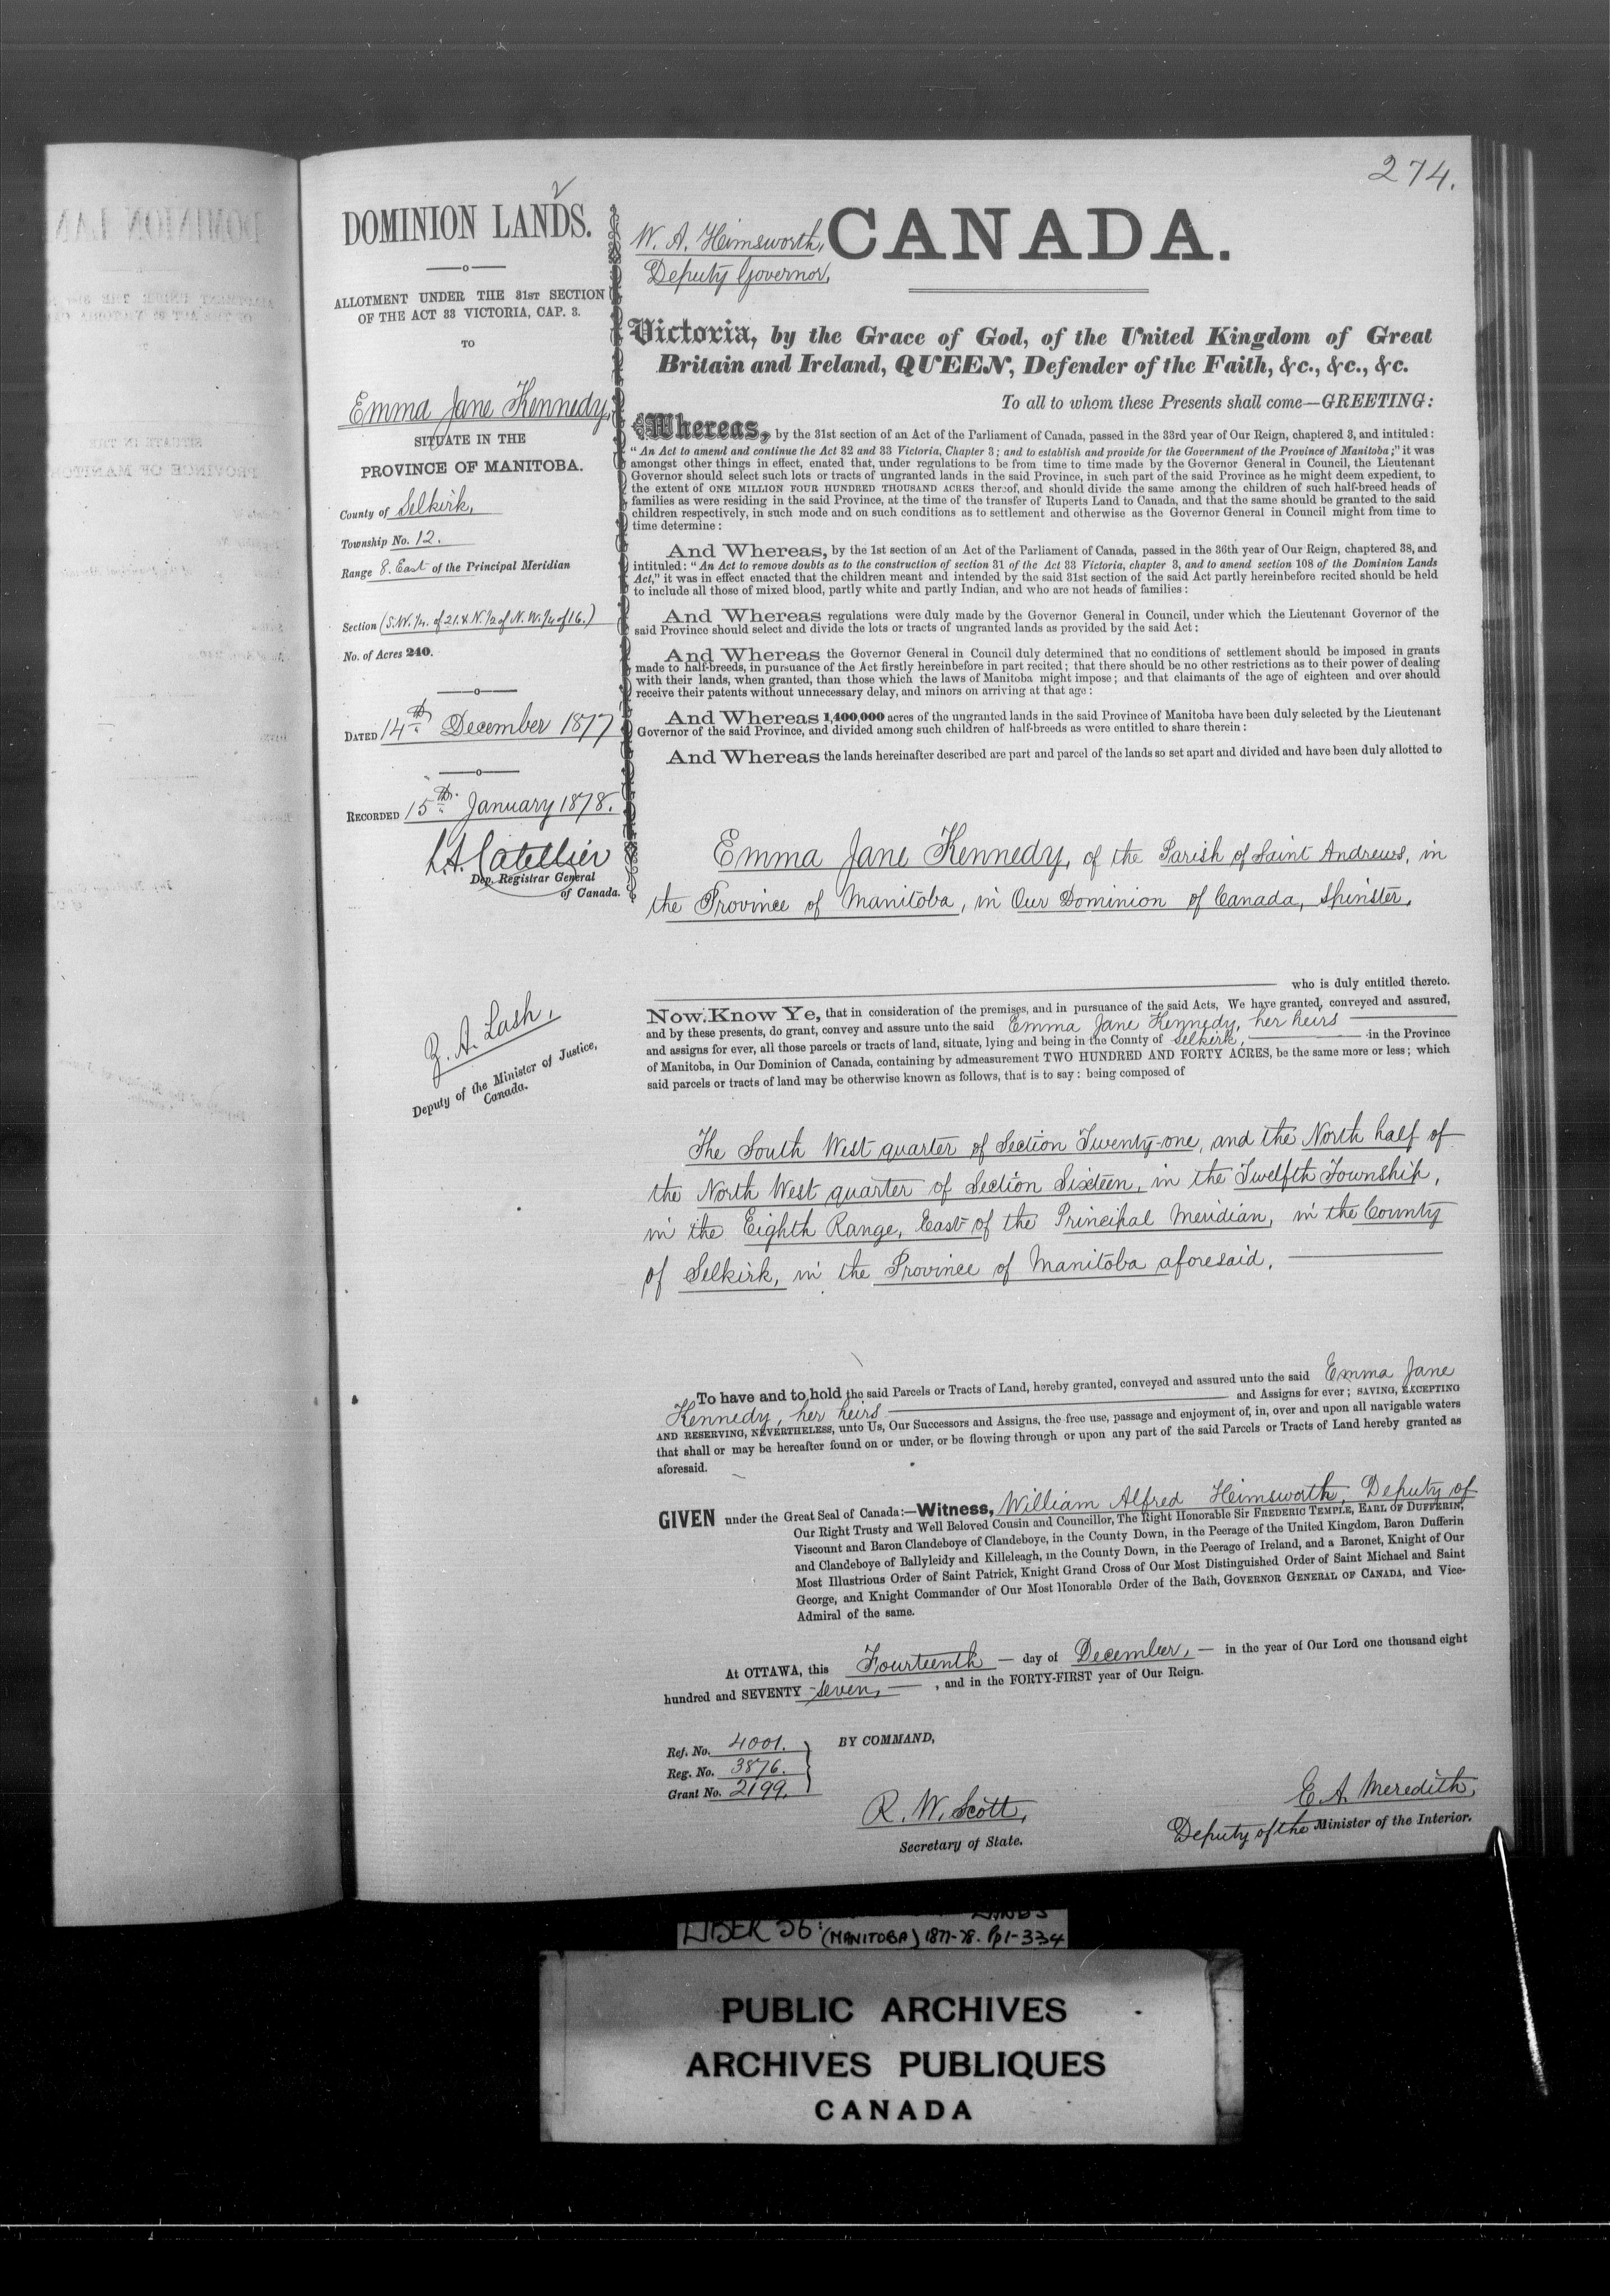 274.
DOMINION LANDS.
ALLOTMENT UNDER THE 31ST SECTION
OF THE ACT 33 VICTORIA, CAP. 3.
TO
Emma Jane Kennedy,
SITUATE IN THE
PROVINCE OF MANITOBA.
County of Selkirk,
Township No. 12.
Range 8. East of the Principal Meridian
Section (S.W. 1/4. of 21. & N. 1/2 of N. W. 1/4 of 16.)
No. of Acres 240.
DATED 14th December 1877
RECORDED 15th January 1878.
L.A. Catellier
Dep. Registrar General
of Canada.
Z. A. Lash,
Deputy of the Minister of Justice,
Canada.
W. A. Himsworth,
Deputy Governor,
CANADA.
Victoria, by the Grace of God, of the United Kingdom of Great
Britain and Ireland, QUEEN, Defender of the Faith, &c., &c., &c.
To all to whom these Presents shall come—GREETING:
Whereas, by the 31st section of an Act of the Parliament of Canada, passed in the 33rd year of Our Reign, chaptered 3, and intituled:
"An Act to amend and continue the Act 32 and 33 Victoria, Chapter 3; and to establish and provide for the Government of the Province of Manitoba;" it was
amongst other things in effect, enated that, under regulations to be from time to time made by the Governor General in Council, the Lieutenant
Governor should select such lots or tracts of ungranted lands in the said Province, in such part of the said Province as he might deem expedient, to
the extent of ONE MILLION FOUR HUNDRED THOUSAND ACRES thereof, and should divide the same among the children of such half-breed heads of
families as were residing in the said Province, at the time of the transfer of Ruperts Land to Canada, and that the same should be granted to the said
children respectively, in such mode and on such conditions as to settlement and otherwise as the Governor General in Council might from time to
time determine:
And Whereas, by the 1st section of an Act of the Parliament of Canada, passed in the 36th year of Our Reign, chaptered 38, and
intituled: "An Act to remove doubts as to the construction of section 31 of the Act 33 Victoria, chapter 3, and to amend section 108 of the Dominion Lands
Act," it was in effect enacted that the children meant and intended by the said 31st section of the said Act partly hereinbefore recited should be held
to include all those of mixed blood, partly white and partly Indian, and who are not heads of families:
And Whereas regulations were duly made by the Governor General in Council, under which the Lieutenant Governor of the
said Province should select and divide the lots or tracts of ungranted lands as provided by the said Act:
And Whereas the Governor General in Council duly determined that no conditions of settlement should be imposed in grants
made to half-breeds, in pursuance of the Act firstly hereinbefore in part recited; that there should be no other restrictions as to their power of dealing
with their lands, when granted, than those which the laws of Manitoba might impose; and that claimants of the age of eighteen and over should
receive their patents without unnecessary delay, and minors on arriving at that age:
And Whereas 1,400,000 acres of the ungranted lands in the said Province of Manitoba have been duly selected by the Lieutenant
Governor of the said Province, and divided among such children of half-breeds as were entitled to share therein:
And Whereas the lands hereinafter described are part and parcel of the lands so set apart and divided and have been duly allotted to
Emma Jane Kennedy, of the Parish of Saint Andrews, in
the Province of Manitoba, in Our Dominion of Canada, Spinster,
who is duly entitled thereto.
Now Know Ye, that in consideration of the premises, and in pursuance of the said Acts, We have granted, conveyed and assured,
and by these presents, do grant, convey and assure unto the said Emma Jane Kennedy, her heirs
and assigns for ever, all those parcels or tracts of land, situate, lying and being in the County of Selkirk, in the Province
of Manitoba, in Our Dominion of Canada, containing by admeasurement TWO HUNDRED AND FORTY ACRES, be the same more or less; which
said parcels or tracts of land may be otherwise known as follows, that is to say: being composed of
The South West quarter of Section Twenty-one, and the North half of
the North West quarter of Section Sixteen, in the Twelfth Township,
in the Eighth Range, East of the Principal Meridian, in the County
of Selkirk, in the Province of Manitoba aforesaid,
To have and to hold the said Parcels or Tracts of Land, hereby granted, conveyed and assured unto the said Emma Jane
Kennedy, her heirs and Assigns for ever; SAVING, EXCEPTING
AND RESERVING, NEVERTHELESS, unto Us, Our Successors and Assigns, the free use, passage and enjoyment of, in, over and upon all navigable waters
that shall or may be hereafter found on or under, or be flowing through or upon any part of the said Parcels or Tracts of Land hereby granted as
aforesaid.
GIVEN under the Great Seal of Canada:—Witness, William Alfred Himsworth, Deputy of
Our Right Trusty and Well Beloved Cousin and Councillor, The Right Honorable Sir FREDERIC TEMPLE, EARL OF DUFFERIN,
Viscount and Baron Clandeboye of Clandeboye, in the County Down, in the Peerage of the United Kingdom, Baron Dufferin
and Clandeboye of Ballyleidy and Killeleagh, in the County Down, in the Peerage of Ireland, and a Baronet, Knight of Our
Most Illustrious Order of Saint Patrick, Knight Grand Cross of Our Most Distinguished Order of Saint Michael and Saint
George, and Knight Commander of Our Most Honorable Order of the Bath, GOVERNOR GENERAL OF CANADA, and Vice-
Admiral of the same.
At OTTAWA, this Fourteenth day of December, in the year of Our Lord one thousand eight
hundred and SEVENTY seven, , and in the FORTY-FIRST year of Our Reign.
Ref. No. 4001.
Reg. No. 3876.
Grant No. 2199.
BY COMMAND,
R. W. Scott,
Secretary of State.
E. A. Meredith,
Deputy of the Minister of the Interior.
LANDS
LIBER 56: (MANITOBA) 1877-78. Pp 1-334
PUBLIC ARCHIVES
ARCHIVES PUBLIQUES
CANADA